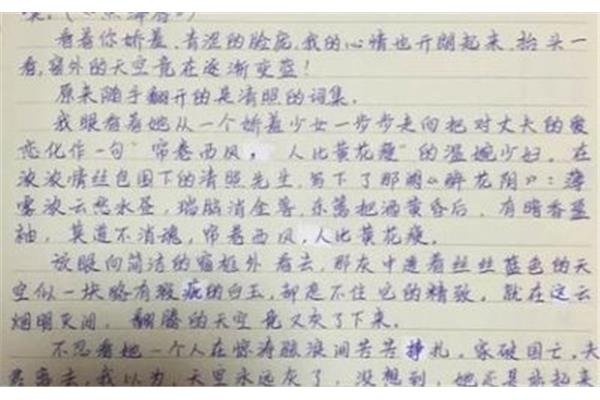 看着你娇羞、青涩的脸庞,我的心情也开朗起来,抬头一
看,窗外的天空竟在逐渐变蓝!
原来随手翻开的是清照的词集。
我眼看着她从一个娇羞少女一步步走向把对丈夫的爱
恋化作一句“帘卷西风, 人比黄花瘦”的温婉少妇。在
浓浓情丝包围下的清照先生,写下了那阕《醉花阴》:薄
雾浓云愁永昼,瑞脑消金兽,东篱把酒黄昏后,有暗香盈
袖,莫道不消魂,帘卷西风,人比黄花瘦。
放眼向简洁的窗框外看去,那灰中透着丝丝蓝色的天
空似一块略有瑕疵的白玉,却忍不住它的精致。就在这云
烟明灭间,翻腾的天空竟又灰了下来。
不忍看她一个人在惊涛骇浪间苦苦挣扎,家破国亡,夫
君离去,我以为,天里永远灰了,没想到,她还是站起来